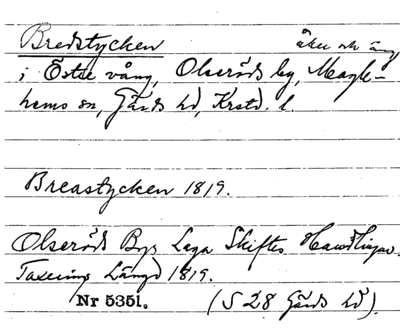 Bredstycken åker och äng
i Östre vång, Olseröds by, Magle-
hems sn, Gärds hd, Krstd. l
Breastycken 1819.
Olseröds Bys Laga Skiftes Handlingar.
Taxerings Längd 1819.
Nr 5351. (S 28 Gärds hd).